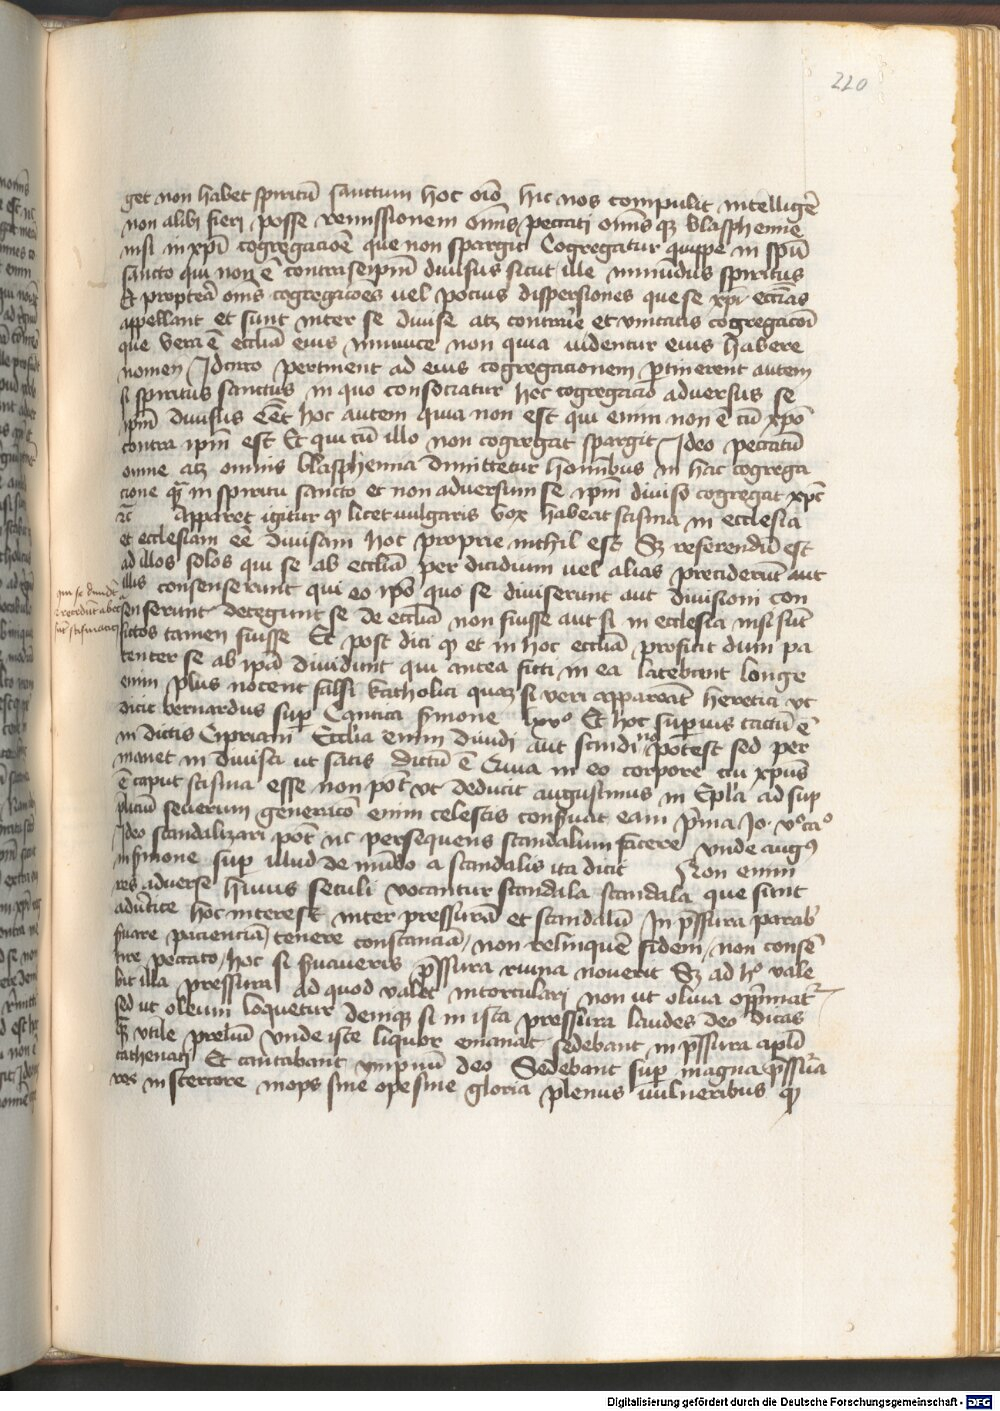 220
get non habet spiritū sanctum hoc oīo hic nos compulit intelligē
non alibj fieri posse remissionem oīnis peccati oīnis qz blasphemie
nisi in xpī cōgregacioē que non spargit Cōgregatur quippe in spū
sancto qui non ē contra seipm̄ diuisus sicut ille inmūdus spiritus
Et proptea oīns cōgregacōes uel pocius dispersiones que se xpī ecclīas
appellant et sunt inter se diuise atz contrarie et vnitatis cogregacōi
que vera ē ecclīa eius inimice non quia uidentur eius habere
nomen Idcirco pertinent ad eius cogregacionem ꝑtinerent autem
si spiritus sanctus in quo consociatur hec cogregacio aduersus se
ipm̄ diuisus eēt hoc autem quia non est qui enim non ē cū xpō
contra ipm̄ est Et qui cū illo non cogregat spargit Ideo peccatū
omne atz omnis blasphemia dimittetur hominibus in hac cogrega
cione quā in spiritu sancto et non aduersum se ipm̄ diuiso cogregat xpc
rc̄ Apparet igitur ꝙ licet vulgaris vox habeat scisma in ecclesia
et ecclesiam eē diuisam hoc proprie nichil est Sz referendū est
ad illos solos qui se ab ecclīa per discidium uel alias preciderūt aut
illis consenserunt qui eo ipō quo se diuiserunt aut diuisioni con
qui se diuidūt
et recedūt ab ecc
sūt scismatici
senserunt detegunt se de ecclīa non fuisse aut si in ecclesia uisi sūt
fictos tamen fuisse Et post dici ꝙ et in hoc ecclīa proficit dum pa
tenter se ab ipā diuidunt qui antea ficti in ea latebant longe
enim plus nocent falsi katholici quaz si veri appareāt heretici vt
dicit bernardus sup̄ Cantica sermone lxvº Et hoc superius tactū ē
in dictis Cipriani Ecclīa enim diuidi aut scindi nō potest sed per
manet in diuisa ut satis dictū ē Quia in eo corpore cui xpūs
ē caput scisma esse non pōt vt deducit augustinus in Epla ad
seuerum enim celestis conseruat eam prima Jo. vº caº
Ideo scandalizari pōt nc persequens scandalum facere vnde augꝰ
in sermone sup̄ illud de mūdo a scandalis ita dicit Non enim
res aduerse huius seculi vocantur scandala scandala que sunt
aduertite hoc interest inter pressurā et scandalū In pressura parabis
seruare pacienciā / tenere constanciā / non relinquē fidem / non consē
tire peccato / hoc si seruaueris pressura ruina nouerit Sz ad hº vale
bit illa pressura ad quod valet in torculari non ut oliua opprimatr
sed ut oleum loquetur demqz si in ista pressura laudes deo dicas
qz vtile prelūm vnde iste liquor emanat sedebant in pressura apli
cathenati Et cantabant ympnū deo Sedebant sup̄ magna pressura
in stercore inops sine ope sine gloria plenus vulneribus ꝙ
Digitalisierung gefördert durch die Deutsche Forschungsgemeinschaft - DFG